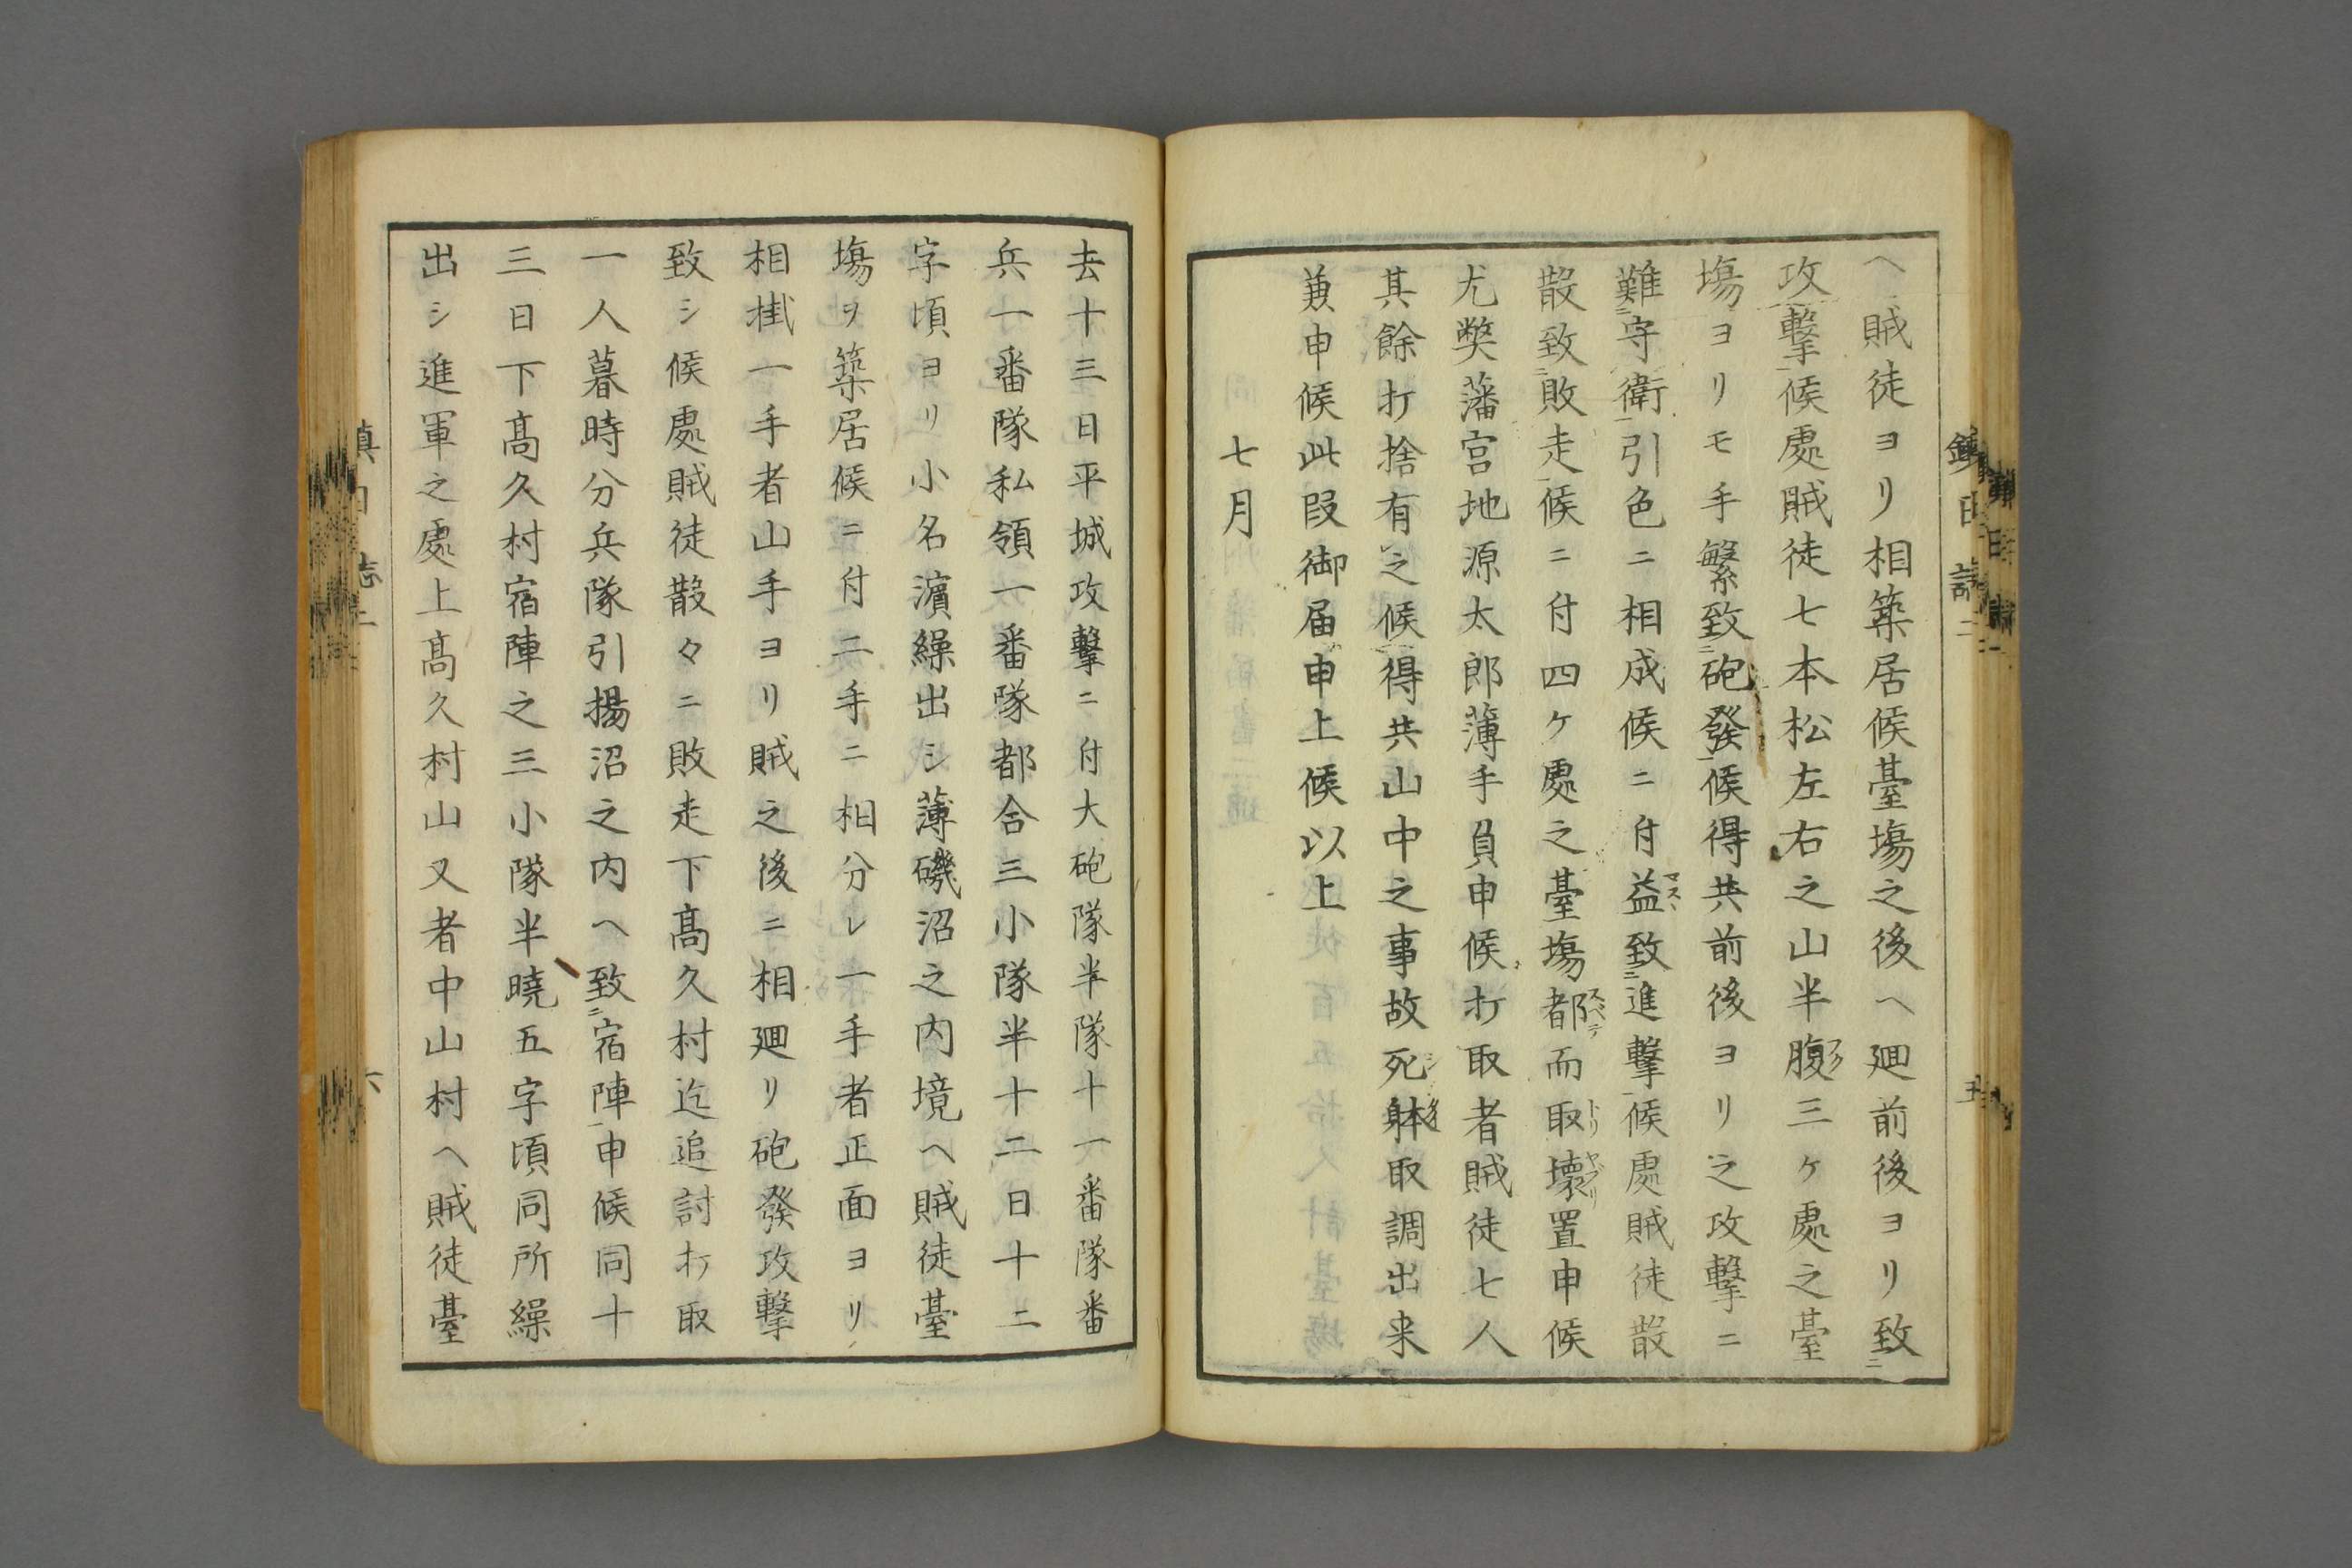 ヘ賊徒ヨリ相築居候臺塲之後ヘ廻前後ヨリ致
攻撃候處賊徒七本松左右之山半腹三ケ處之臺
塲ヨリモ手繁致砲發候得共前後ヨリ之攻撃ニ
難守衛引色ニ相成候ニ付益致進撃候處賊徒散
散致敗走候ニ付四ケ處之臺塲都而取壊置申候
尤弊藩宮地源太郎薄手負申候打取者賊徒七人
其餘打捨有之候得共山中之事故死躰取調出来
兼申候此段御届申上候以上
七月
去十三日平城攻撃ニ付大砲隊半隊十一番隊番
兵一番隊私領一番隊都合三小隊半十二日十二
字頃ヨリ小名濵繰出シ薄磯沼之内境ヘ賊徒臺
塲ヲ築居候ニ付二手ニ相分レ一手者正面ヨリ
相掛一手者山手ヨリ賊之後ニ相廻リ砲發攻撃
致シ候處賊徒散々ニ敗走下髙久村迄追討打取
一人暮時分兵隊引揚沼之内ヘ致宿陣申候同十
三日下髙久村宿陣之三小隊半曉五字頃同所繰
出シ進軍之處上髙久村山又者中山村ヘ賊徒臺